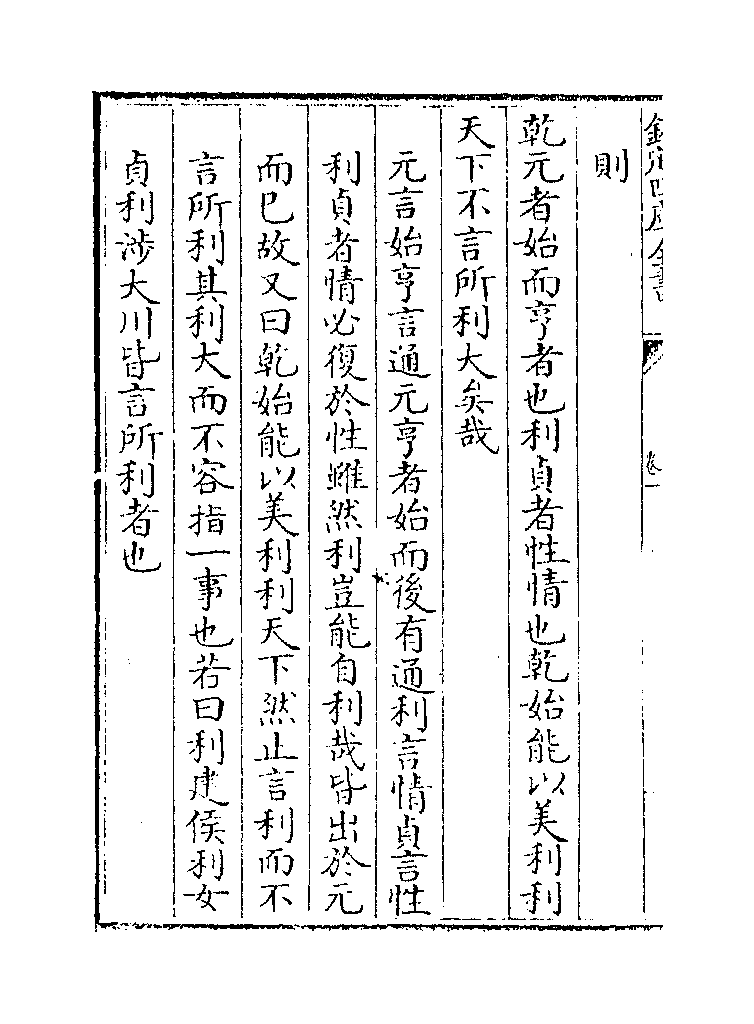 欽定四庫全書 卷一
則
乾元者始而亨者也利貞者性情也乾始能以美利利
天下不言所利大矣哉
元言始亨言通元亨者始而後有通利言情貞言性
利貞者情必復於性雖然利豈能自利哉皆出於元
而已故又曰乾始能以美利利天下然止言利而不
言所利其利大而不容指一事也若曰利建侯利女
貞利涉大川皆言所利者也